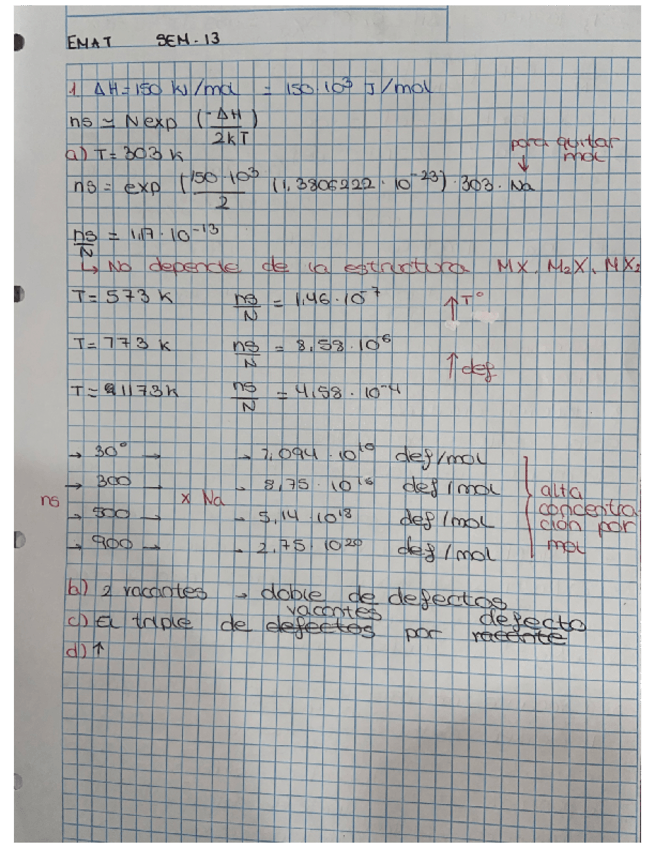 EMAT SEM. 13
1 ΔH = 150 kJ/mol = 150·10³ J/mol
ns ≃ N exp (-ΔH/2kT)
a) T = 303 K
para quitar mol
ns = exp (150·10³/2 (1,3806222·10⁻²³)·303·Na
ns/N = 1,17·10⁻¹³
↳ No depende de la estructura MX, M₂X, MX₂
T = 573 K ns/N = 1,46·10⁻⁷ ↑T°
T = 773 K ns/N = 8,58·10⁶ ↑def
T = 1173 K ns/N = 4,58·10⁻⁴
→ 30° → → 7,094·10¹⁰ def/mol
→ 300 → → 8,75·10¹⁶ def/mol alta
ns → 500 → x Na → 5,14·10¹⁸ def/mol concentración por
→ 900 → → 2,75·10²⁰ def/mol mol
b) 2 vacantes → doble de defectos
vacantes defecto
c) El triple de defectos por vacante
d) ↑